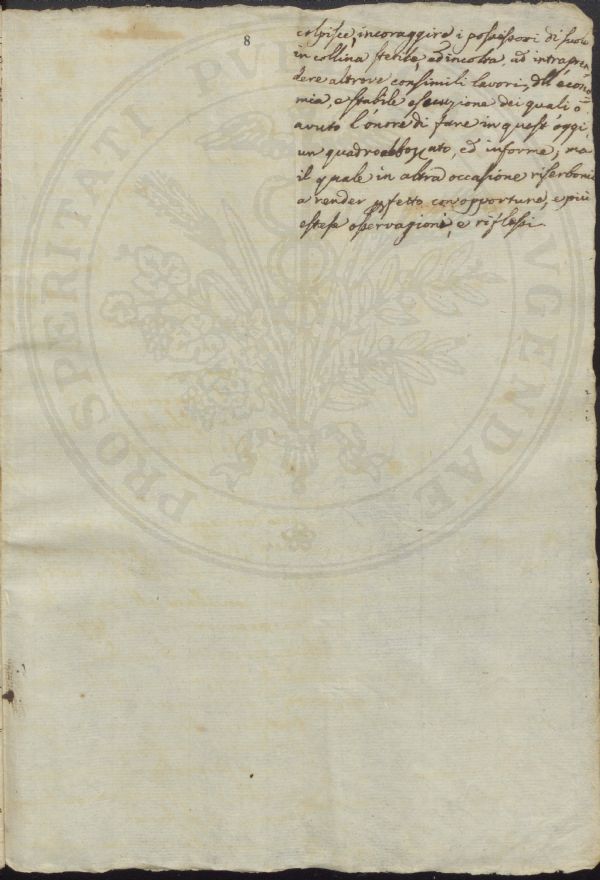 8
colpisce, incoraggire i possessori di suolo
in collina sterile, ed incolta, ad intrapren=
dere altrove consimili lavori, dell'econo=
mia, e stabile esecuzione dei quali ò
avuto l'onore di fare in quest'oggi
un quadro abbozzato, ed informe, ma
il quale in altra occasione riserbomi
a render perfetto con opportune, e più
estese osservazioni, e riflessi.
PROSPERITATI PVBLICAE AVGENDAE